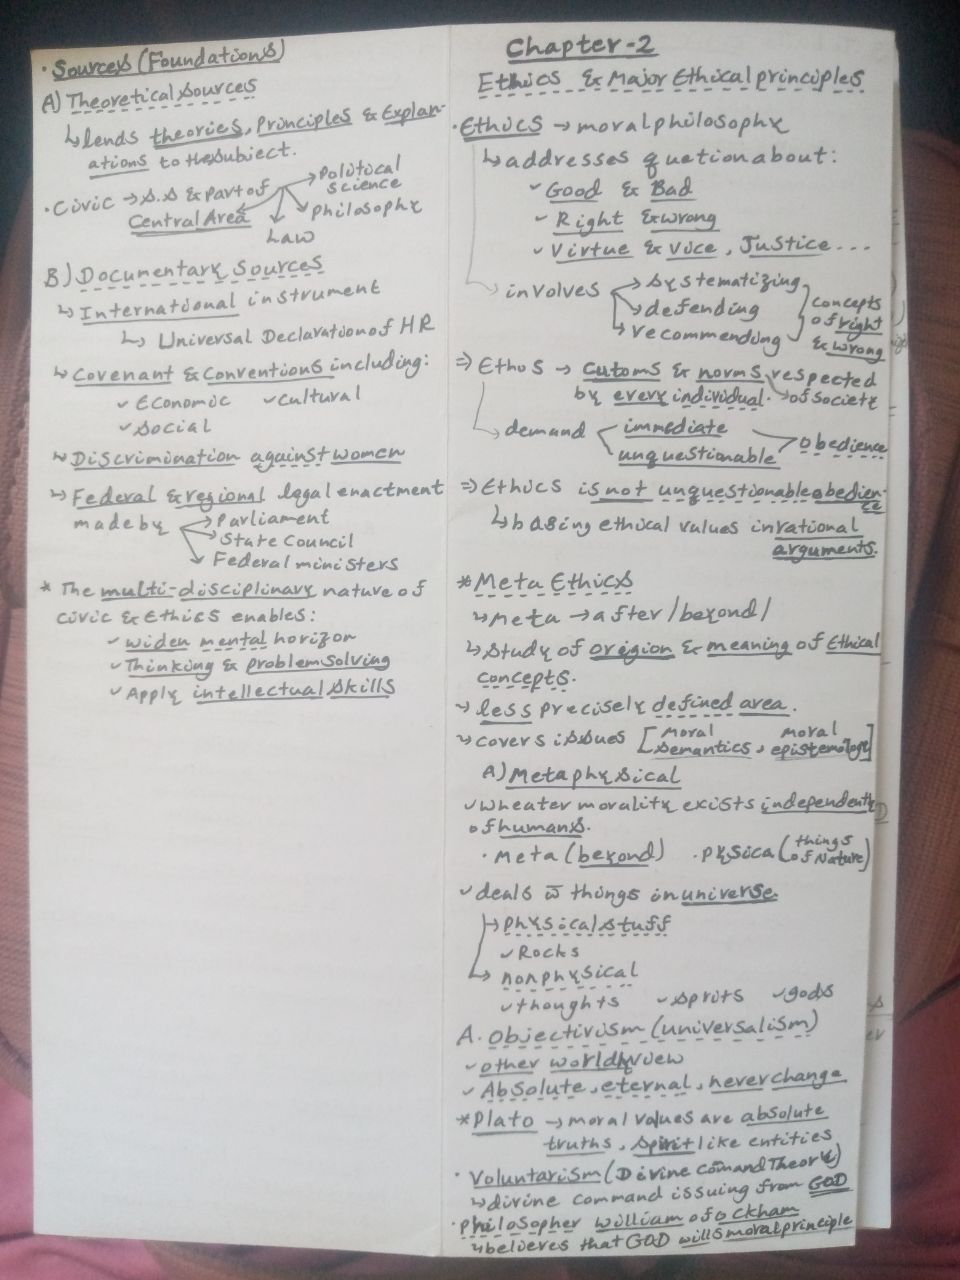 · Sources (Foundations)
A) Theoretical sources
↳ lends theories, principles & Explan-
ations to the subject.
· Civic → s.s & part of
Central Area
→ Political
science
→ Philosophy
Law
B) Documentary Sources
↳ International instrument
↳ Universal Declaration of HR
↳ Covenant & Conventions including:
✓ Economic ✓ Cultural
✓ Social
↳ Discrimination against women
↳ Federal & regional legal enactment
made by → Parliament
→ State Council
→ Federal ministers
* The multi-disciplinary nature of
civic & Ethics enables:
✓ widen mental horizon
✓ Thinking & problem solving
✓ Apply intellectual skills
Chapter-2
Ethics & Major Ethical principles
· Ethics → moral philosophy
↳ addresses quetion about:
✓ Good & Bad
✓ Right & wrong
✓ Virtue & Vice, Justice ...
↳ involves → systematizing
→ defending
→ recommending
concepts
of right
& wrong
⇒ Ethos → cutoms & norms respected
by every individual. of society
→ demand immediate
unquestionable
obedience
⇒ Ethics is not unquestionable obedien-
ce
↳ basing ethical values in rational
arguments.
* Meta Ethics
↳ Meta → after /beyond/
↳ study of oregion & meaning of Ethical
concepts.
↳ less precisely defined area.
↳ covers issues [moral semantics, moral epistemology]
A) Metaphysical
✓ wheater morality exists independently
of humans.
· Meta (beyond) · Physica (things
of Nature)
✓ deals w̄ things in universe
→ physical stuff
✓ Rocks
→ nonphysical
✓ thoughts ✓ sprits ✓ gods
A. Objectivism (universalism)
✓ other worldly view
✓ Absolute, eternal, never change
* Plato → moral values are absolute
truths, spirit like entities
· Voluntarism (Divine Comand Theory)
↳ divine command issuing from GOD
· Philosopher william of ockham
↳ believes that GOD wills moral principle